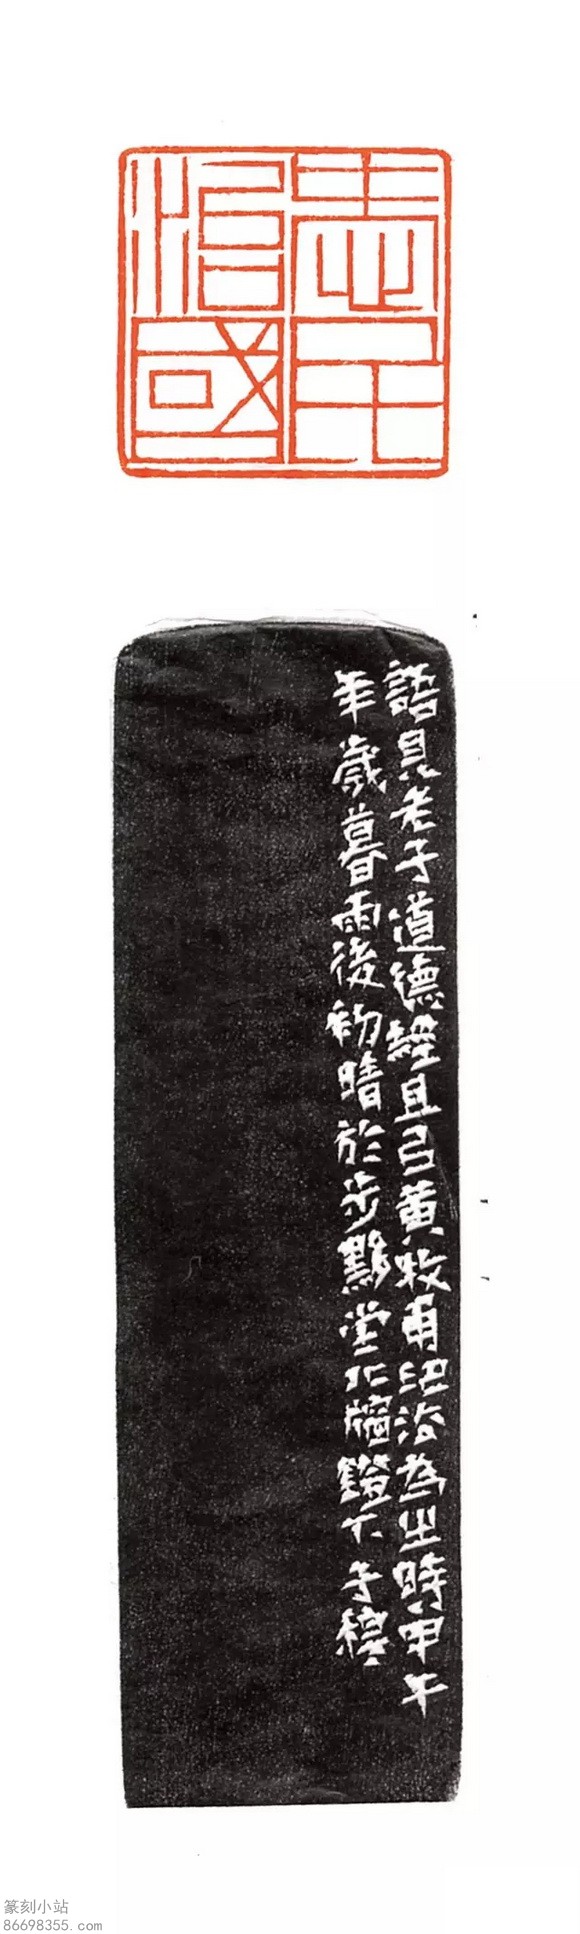 愛民
治國
語見老子道德經且㠯黃牧甫法為之時甲午
年歲暮雨後初晴於步黟堂北牖鐙下子穆
篆刻小站
86698355.com